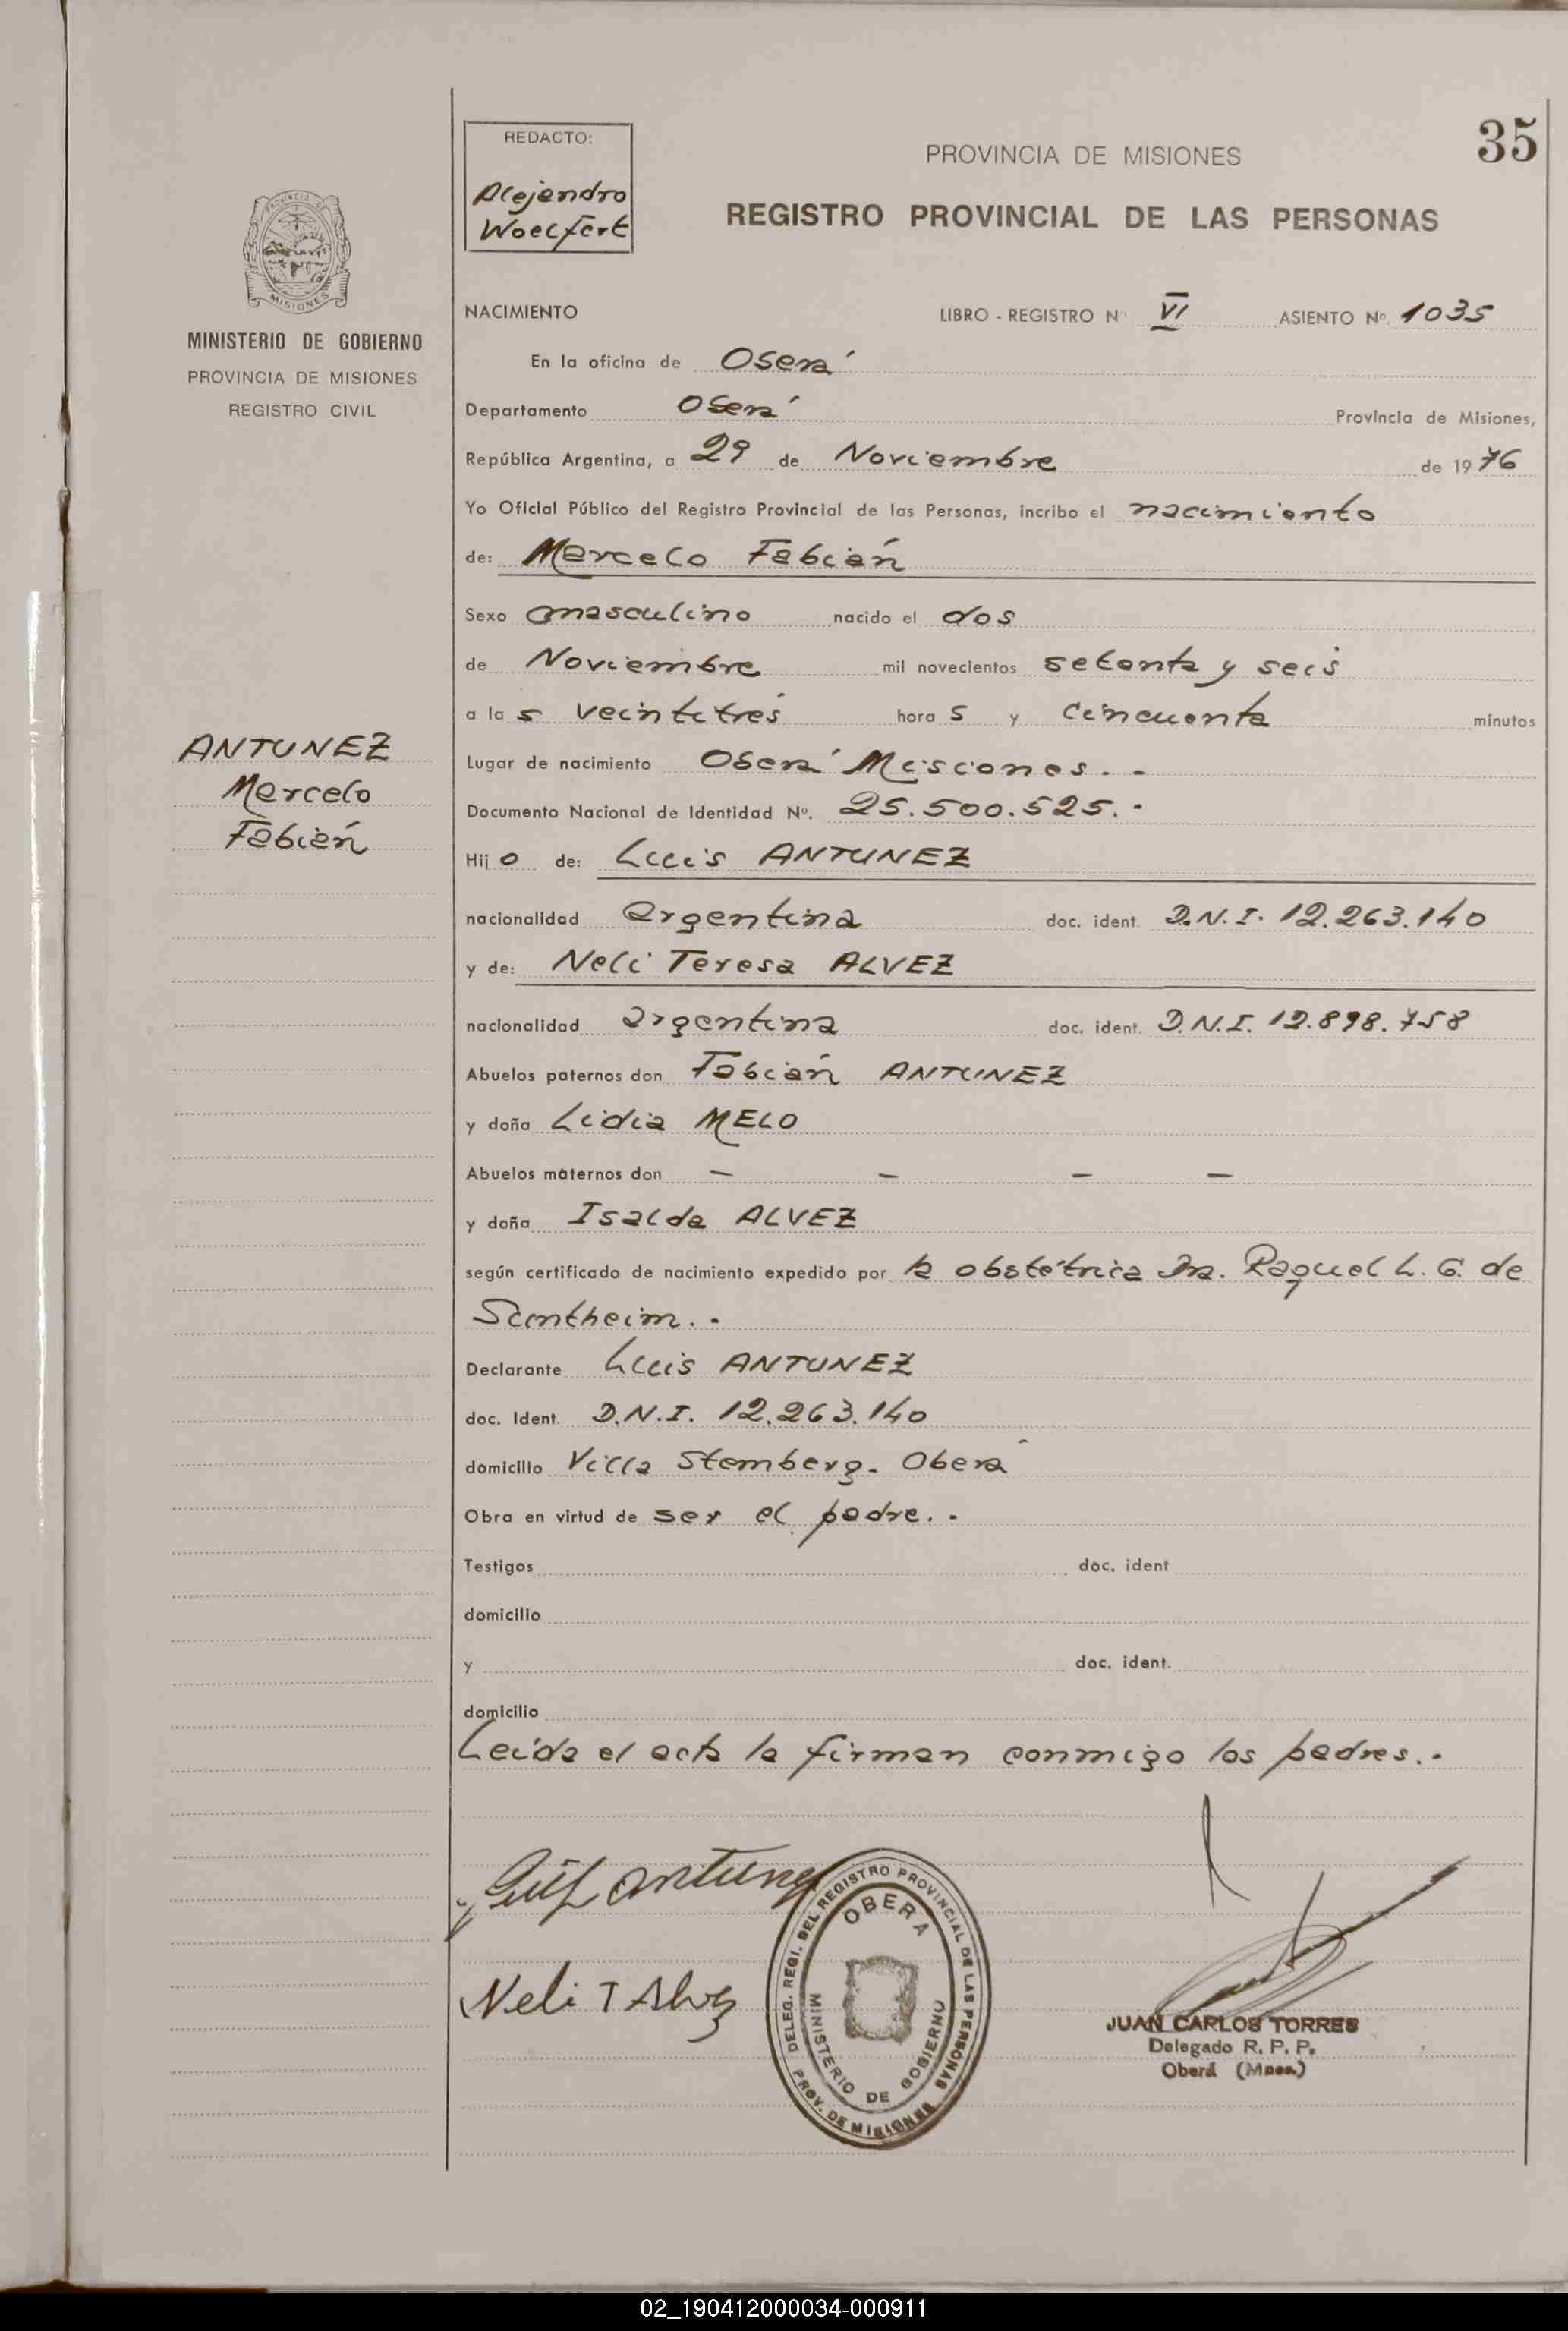 35
REDACTO:
Alejandro
Woelfert
PROVINCIA DE MISIONES
REGISTRO PROVINCIAL DE LAS PERSONAS
PROVINCIA DE
MISIONES
MINISTERIO DE GOBIERNO
PROVINCIA DE MISIONES
REGISTRO CIVIL
NACIMIENTO LIBRO - REGISTRO Nº VI ASIENTO Nº. 1035
En la oficina de Oberá
Departamento Oberá Provincia de Misiones,
República Argentina, a 29 de Noviembre de 1976
Yo Oficial Público del Registro Provincial de las Personas, incribo el nacimiento
de: Marcelo Fabián
Sexo masculino nacido el dos
de Noviembre mil novecientos setenta y seis
a las veintitrés horas y cincuenta minutos
ANTUNEZ
Marcelo
Fabián
Lugar de nacimiento Oberá Misiones. -
Documento Nacional de Identidad Nº. 25.500.525. -
Hijo de: Luis ANTUNEZ
nacionalidad argentina doc. ident. D.N.I. 12.263.140
y de: Neli Teresa ALVEZ
nacionalidad argentina doc. ident. D.N.I. 12.898.758
Abuelos paternos don Fabián ANTUNEZ
y doña Lidia MELO
Abuelos maternos don - - - -
y doña Isalda ALVEZ
según certificado de nacimiento expedido por la obstétrica Dra. Raquel L. G. de
Suntheim. -
Declarante Luis ANTUNEZ
doc. Ident. D.N.I. 12.263.140
domicilio Villa Stemberg - Oberá
Obra en virtud de ser el padre. -
Testigos doc. ident
domicilio
y doc. ident.
domicilio
Leída el acta la firman conmigo los padres. -
Luis Antunez
Neli T Alvez
DELEG. REGI. DEL REGISTRO PROVINCIAL DE LAS PERSONAS
OBERA
MINISTERIO DE GOBIERNO
PROV. DE MISIONES
JUAN CARLOS TORRES
Delegado R. P. P.
Oberá (Mnes.)
02_190412000034-000911